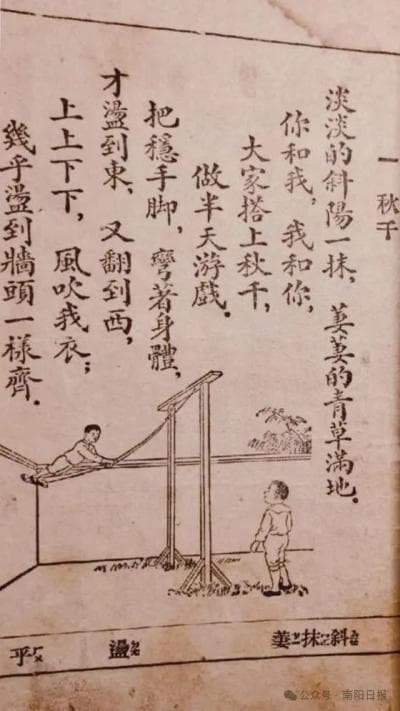 一 秋千
淡淡的斜陽一抹，萋萋的青草滿地．
你和我，我和你，
大家搭上秋千，
做半天游戲．
把穩手脚，彎著身體，
才盪到東，又翻到西，
上上下下，風吹我衣；
幾乎盪到牆頭一樣齊．
斜 抹 萋
盪
乎
公众号 · 南阳日报